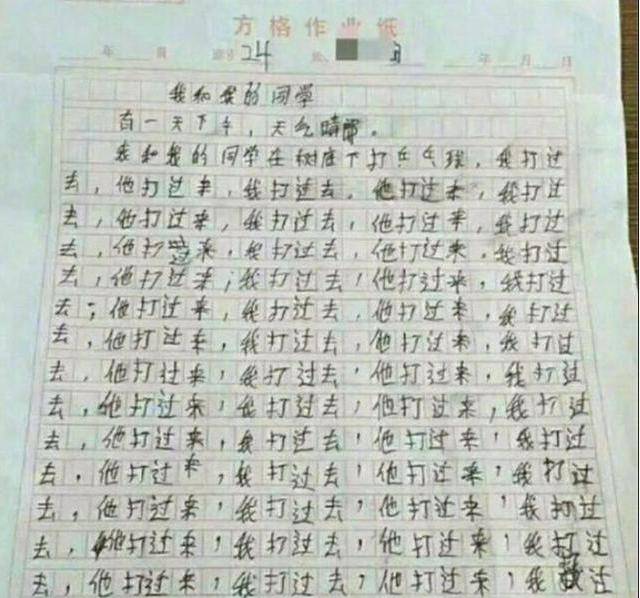 方格作业纸
年 24 3 年 月 日
我和我的同学
有一天下午，天气晴朗。
我和我的同学在树底下打乒乓球，我打过
去，他打过来，我打过去，他打过来，我打过
去，他打过来，我打过去，他打过来，我打过
去，他打过来，我打过去，他打过来，我打过
去，他打过来，我打过去，他打过来，我打过
去，他打过来，我打过去，他打过来，我打过
去，他打过来，我打过去，他打过来，我打过
去，他打过来，我打过去，他打过来，我打过
去，他打过来，我打过去，他打过来，我打过
去，他打过来，我打过去，他打过来，我打过
去，他打过来，我打过去，他打过来，我打过
去，他打过来，我打过去，他打过来，我打过
去，他打过来，我打过去，他打过来，我打过
去，他打过来，我打过去，他打过来，我过